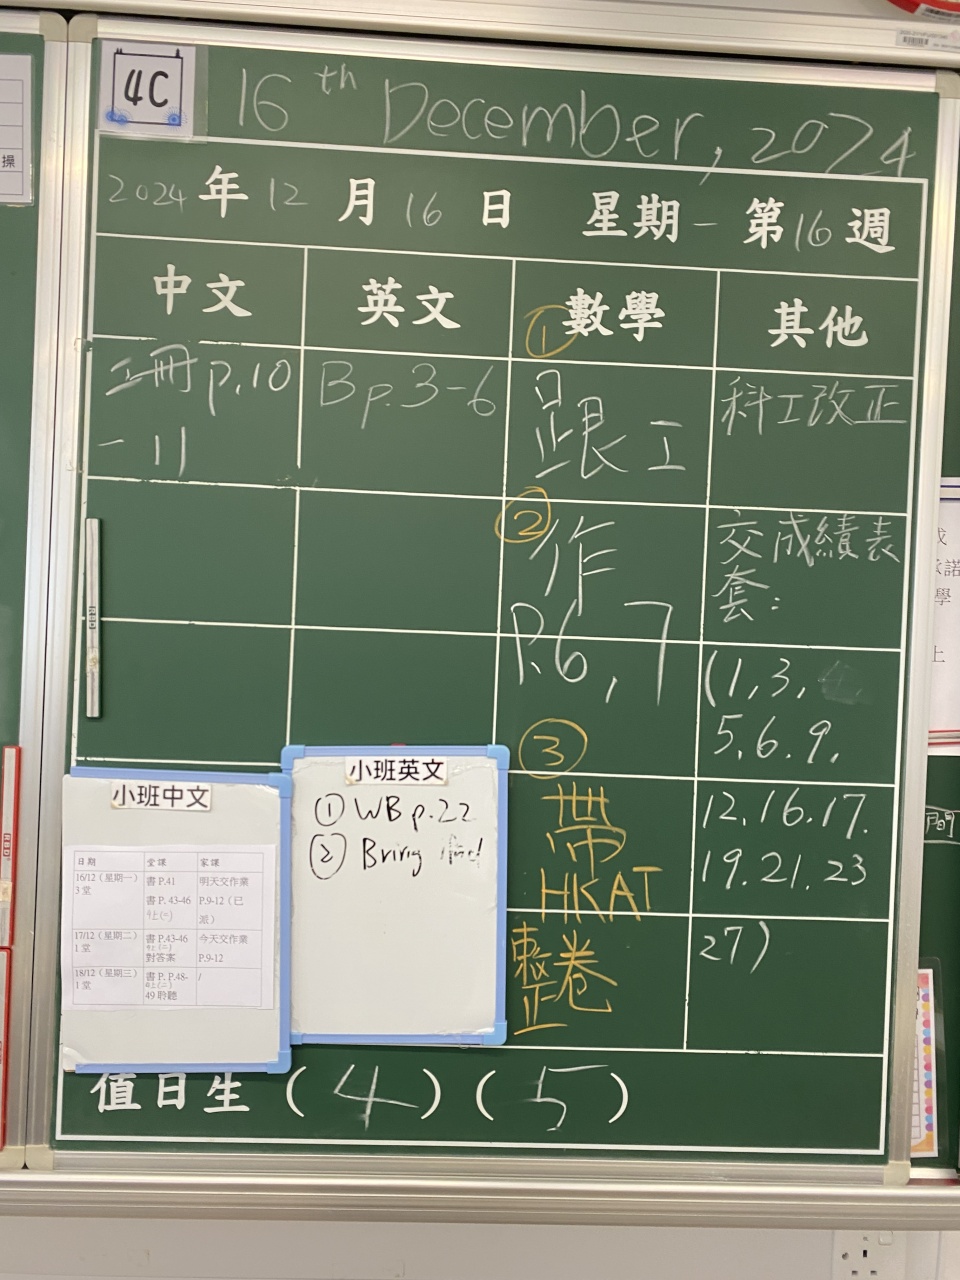 4C
16th December, 2024
2024年12月16日 星期一 第16週
中文 英文 數學 其他
操
工冊p.10
-11
Bp.3-6
①
跟工
②
作
P.6,7
③
帶
HKAT
整卷
科工改正
交成績表
套:
(1,3,
5.6.9.
12.16.17.
19.21.23
27)
小班中文
日期 堂課 家課
16/12(星期一) 書 P.41 明天交作業
3 堂 書 P. 43-46 P.9-12(已
4上(二) 派)
17/12(星期二) 書 P.43-46 今天交作業
1 堂 4上(二)
對答案 P.9-12
18/12(星期三) 書 P. P.48- /
1 堂 4上(二)
49 聆聽
小班英文
① WB p.22
② Bring
值日生 (4)(5)
承諾
學
上